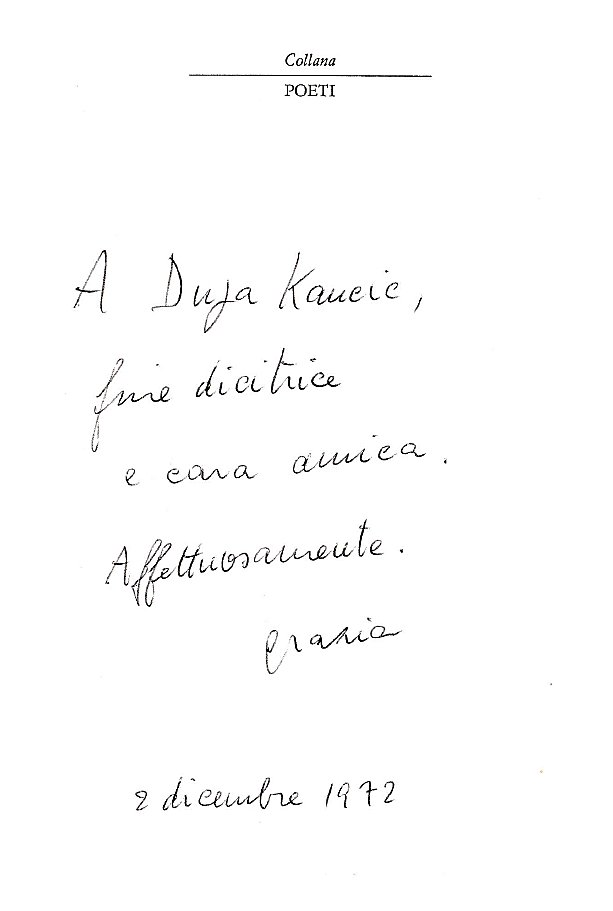 Collana
POETI
A Duja Kaucic,
fine dicitrice
e cara amica.
Affettuosamente.
Grazia
2 dicembre 1972